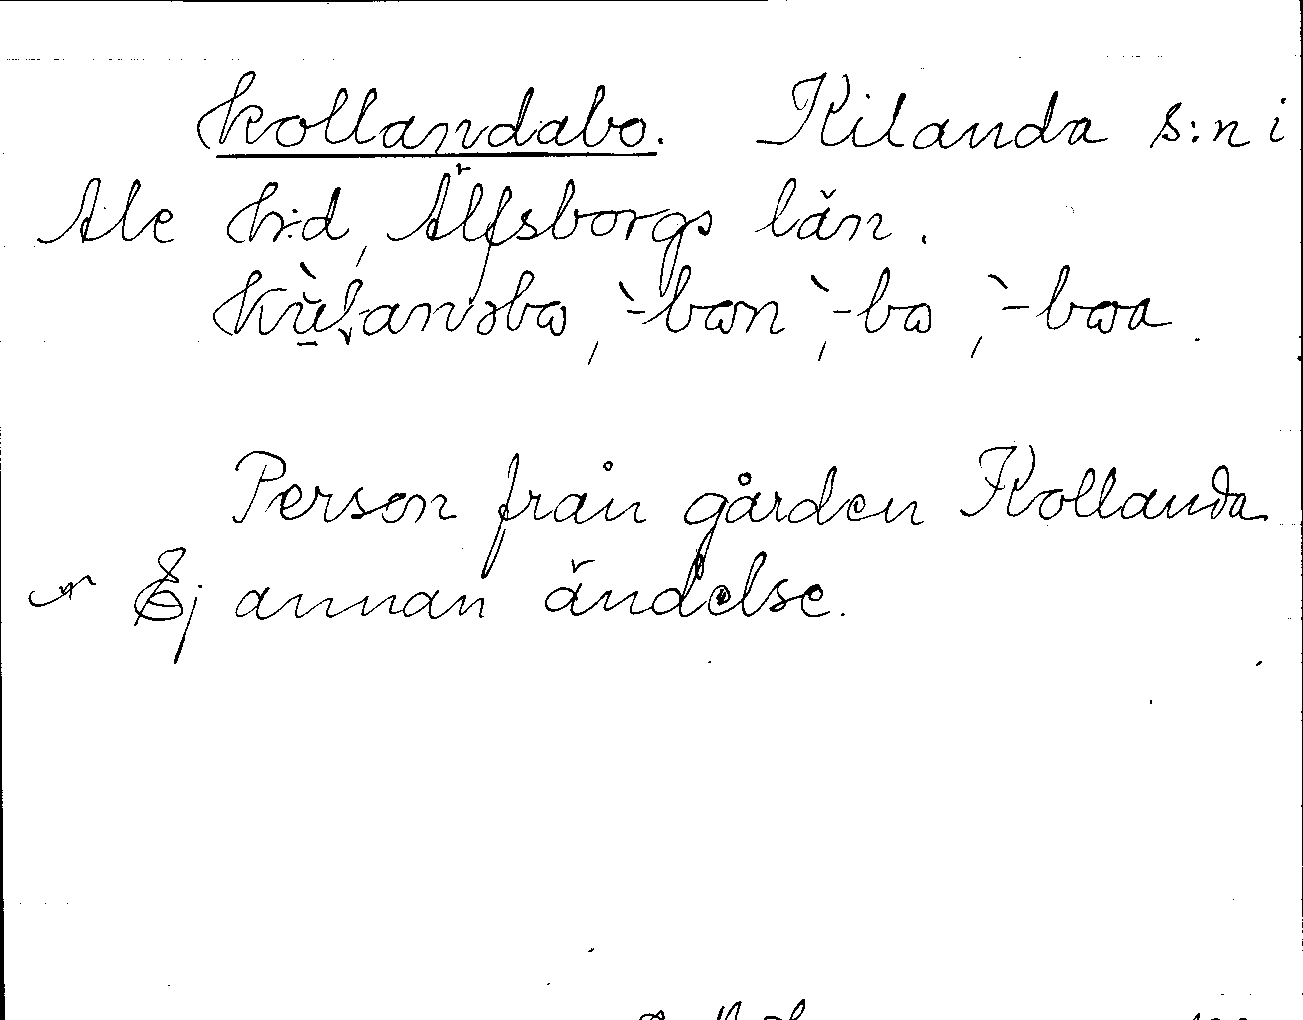 kollandabo. Kilanda s:n i
Ale h:d, Älfsborgs län.
Person från gården Kollanda
Ej annan ändelse.